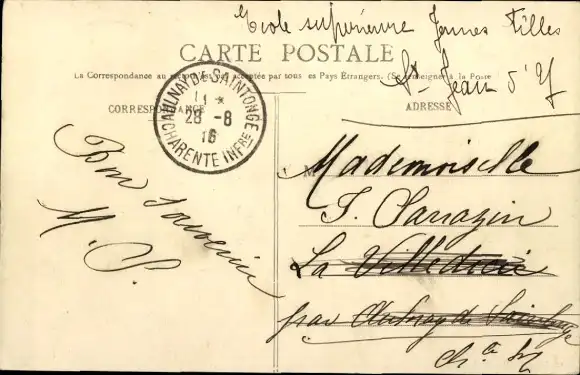 Ecole supérieure Jeunes filles
St Jean d'Y
CARTE POSTALE
La Correspondance au recto n'est pas acceptée par tous les Pays Étrangers. (Se renseigner à la Poste
CORRESPONDANCE
ADRESSE
AULNAY DE SAINTONGE
11 *
28 - 8
16
CHARENTE INFRE
Bon souvenir
M. S.
M
Mademoiselle
J. Sarrazin
La Villedieu
par Aulnay de Saintonge
Ch.te